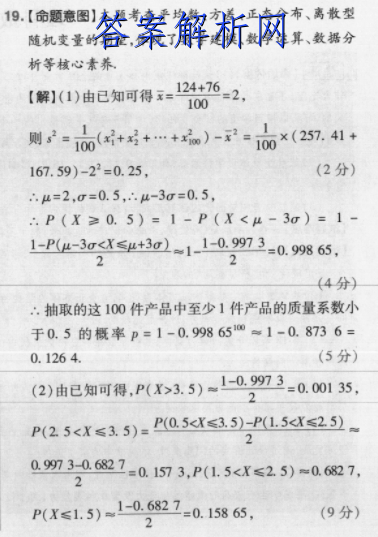 19.【命题意图】本题考查平均数、方差、正态分布、离散型
答案解析网
随机变量的
数学运算、数据分
析等核心素养.
【解】(1)由已知可得x̄=(124+76)/100=2,
则 s²=1/100(x₁²+x₂²+⋯+x₁₀₀²)-x̄²=1/100×(257.41+
167.59)-2²=0.25, (2分)
∴μ=2,σ=0.5,∴μ-3σ=0.5,
∴P(X≥0.5)=1-P(X<μ-3σ)=1-
(1-P(μ-3σ<X≤μ+3σ))/2≈1-(1-0.997 3)/2=0.998 65,
(4分)
∴抽取的这100件产品中至少1件产品的质量系数小
于0.5的概率 p=1-0.998 65¹⁰⁰≈1-0.873 6=
0.126 4. (5分)
(2)由已知可得,P(X>3.5)≈(1-0.997 3)/2=0.001 35,
P(2.5<X≤3.5)=(P(0.5<X≤3.5)-P(1.5<X≤2.5))/2≈
(0.997 3-0.682 7)/2=0.157 3,P(1.5<X≤2.5)≈0.682 7,
P(X≤1.5)≈(1-0.682 7)/2=0.158 65, (9分)